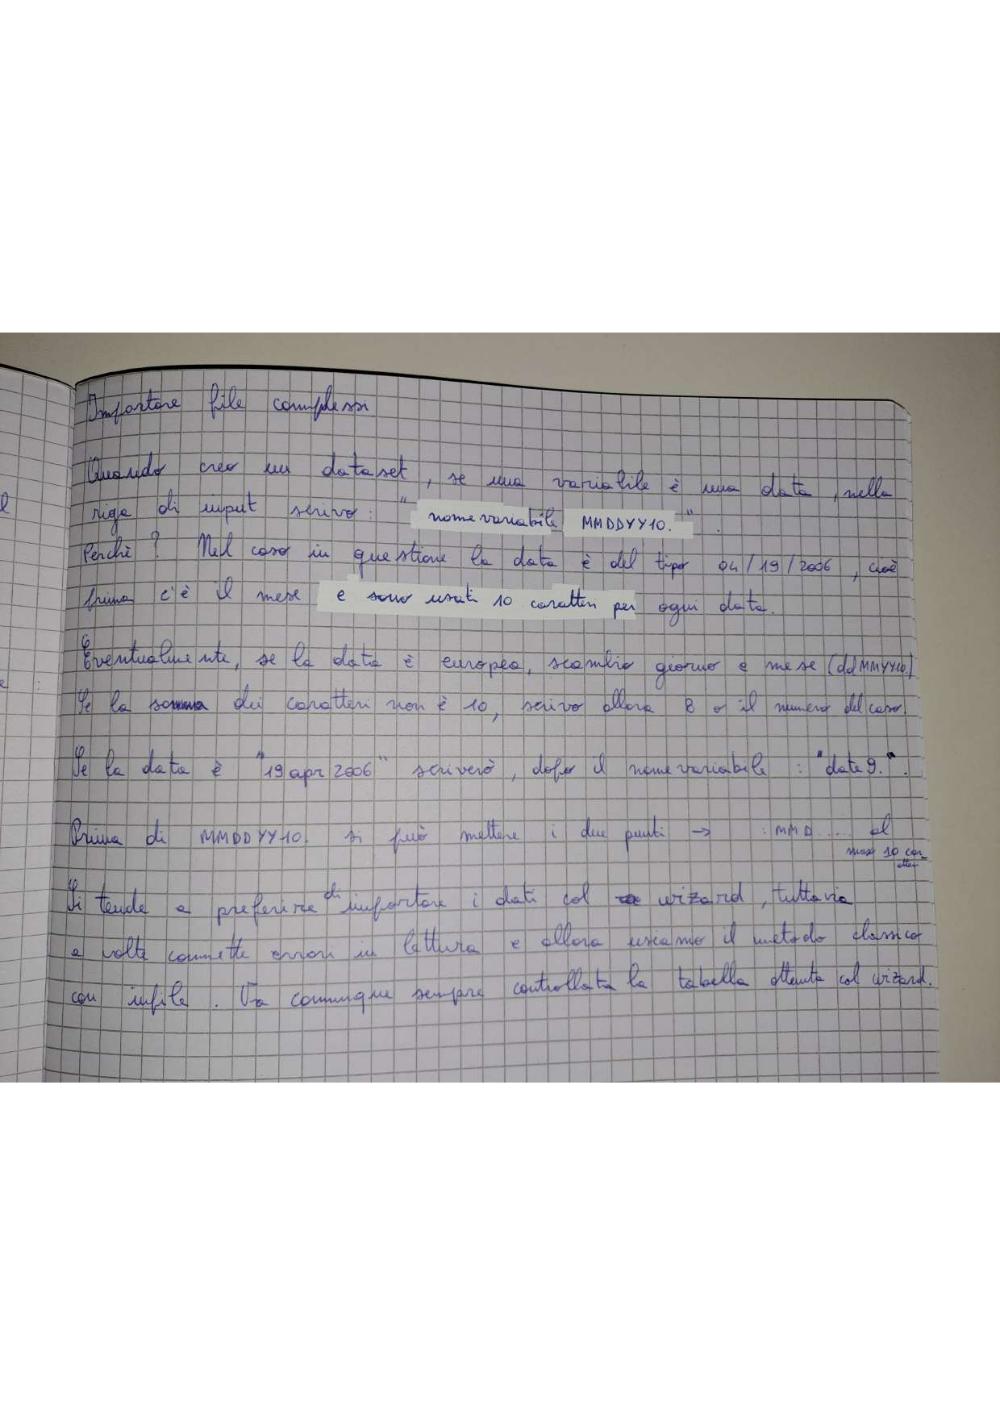 Importare file complessi
Quando creo un dataset, se una variabile è una data, nella
riga di input scrivo: "nomevariabile MMDDYY10.".
Perchè? Nel caso in questione la data è del tipo 04/19/2006, cioè
prima c'è il mese e sono usati 10 caratteri per ogni data.
Eventualmente, se la data è europea, scambio giorno e mese (ddMMYY10.)
Se la somma dei caratteri non è 10, scrivo allora 8 o il numero del caso.
Se la data è "19apr2006" scriverò, dopo il nomevariabile: "date9.".
Prima di MMDDYY10. si può mettere i due punti → :MMD.... al
max 10 caratteri
Si tende a preferire di importare i dati col wizard, tuttavia
a volte commette errori in lettura e allora usiamo il metodo classico
con infile. Va comunque sempre controllata la tabella ottenuta col wizard.
l
e :